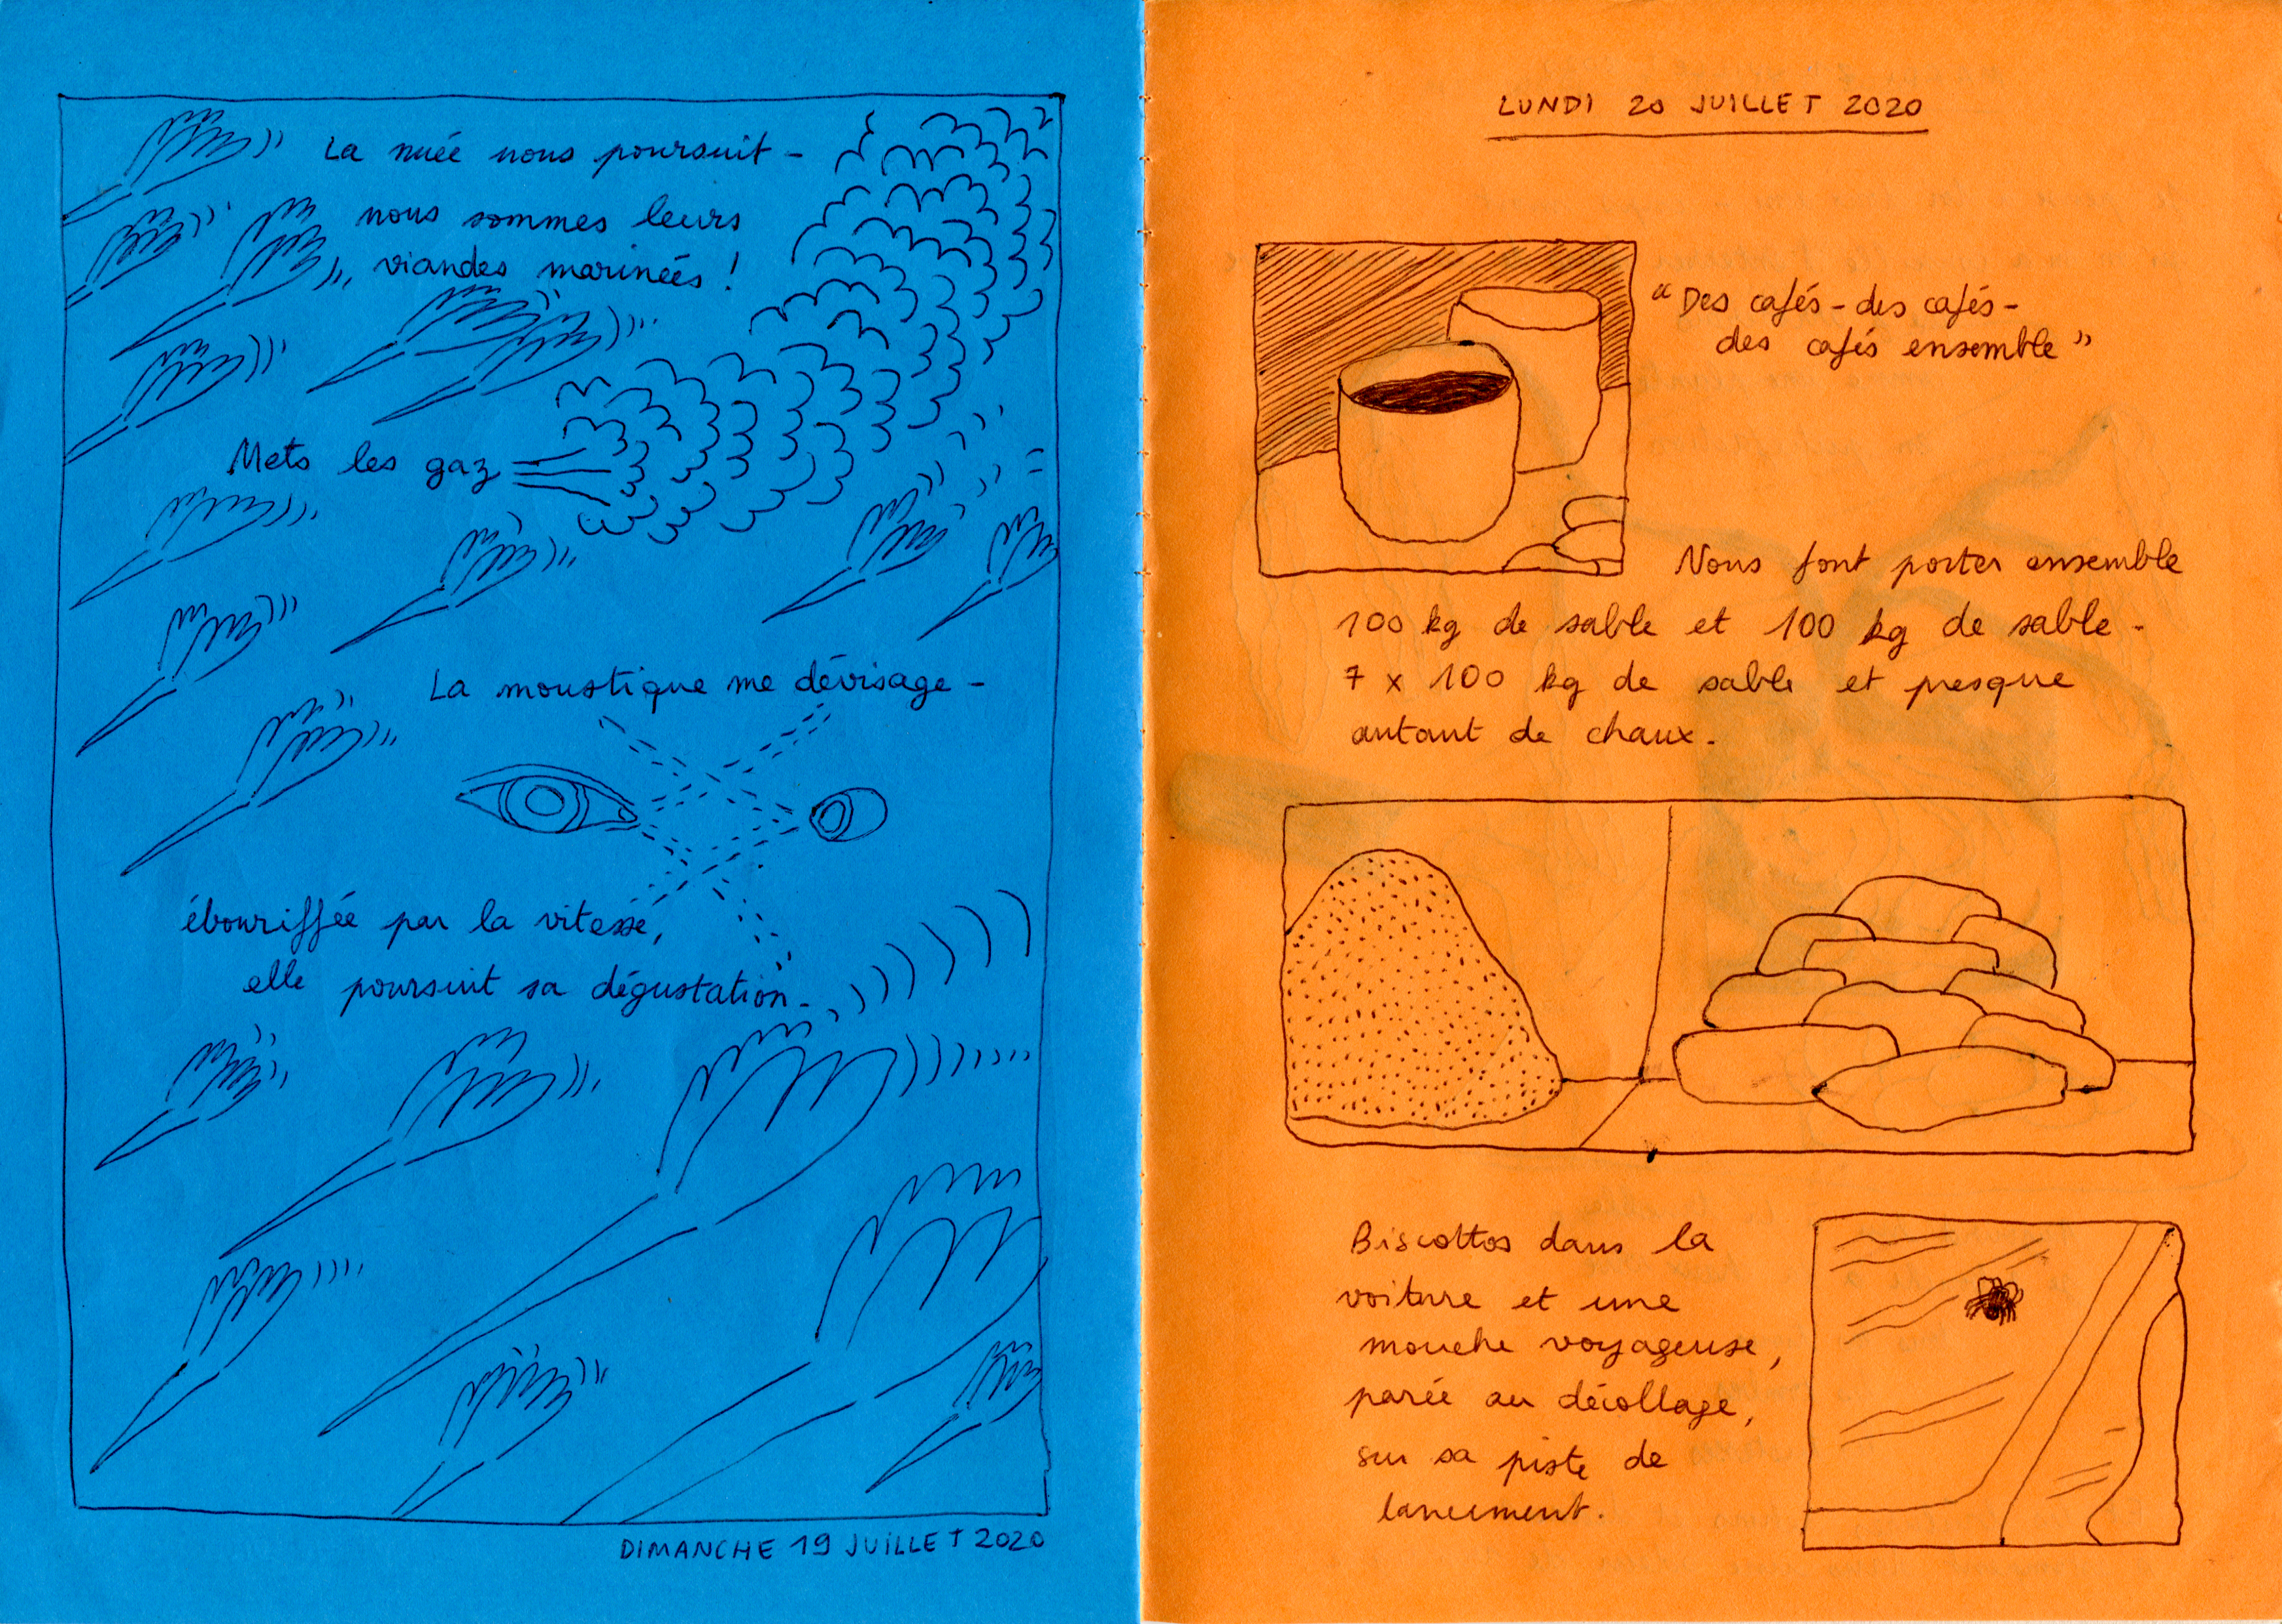 La nuée nous poursuit -
nous sommes leurs
viandes marinées !
Mets les gaz
La moustique me dévisage -
ébouriffée par la vitesse,
elle poursuit sa dégustation -
DIMANCHE 19 JUILLET 2020
LUNDI 20 JUILLET 2020
“Des cafés - des cafés -
des cafés ensemble”
Nous font porter ensemble
100 kg de sable et 100 kg de sable -
7 x 100 kg de sable et presque
autant de chaux -
Biscottos dans la
voiture et une
mouche voyageuse,
parée au décollage,
sur sa piste de
lancement.